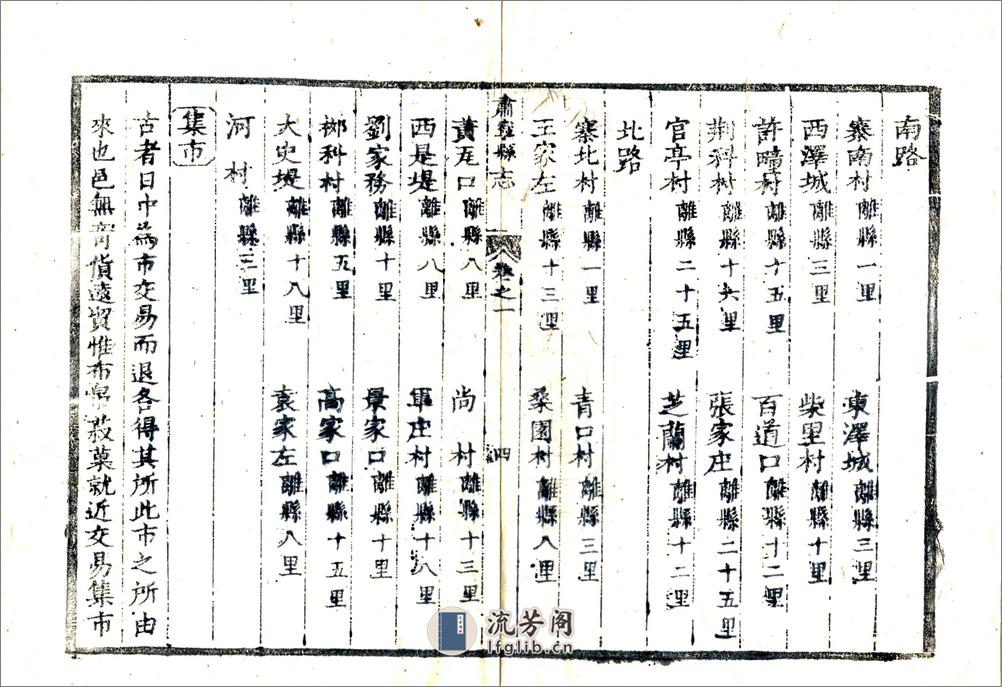 南路
寨南村離縣一里 東澤城離縣三里
西澤城離縣三里 柴里村離縣十里
許疃村離縣十五里 百道口離縣十二里
荆科村離縣十六里 張家庄離縣二十五里
官亭村離縣二十五里 芝蘭村離縣十二里
北路
寨北村離縣一里 青口村離縣三里
王家左離縣十三里 桑園村離縣八里
肅寧縣志 卷之一 四
黄尾口離縣八里 尚村離縣十三里
西是堤離縣八里 軍庄村離縣十八里
劉家務離縣十里 景家口離縣十里
柳科村離縣五里 高家口離縣十五里
大史堤離縣十八里 袁家左離縣八里
河村離縣三里
集市
古者日中為市交易而退各得其所此市之所由
來也邑無奇貨遠賀惟布帛菽菓就近交易集市
流芳阁
lfglib.cn